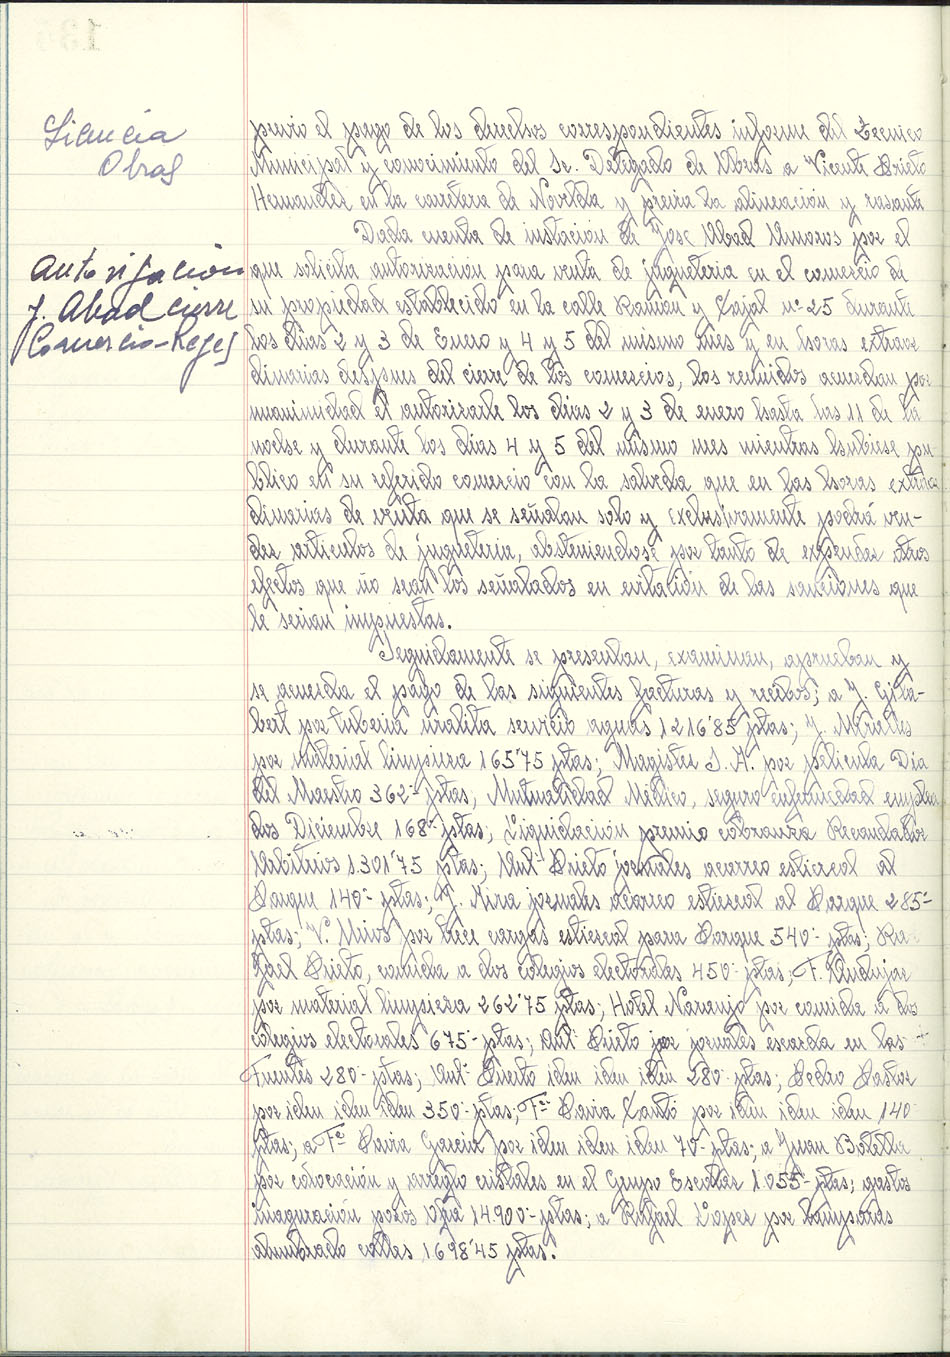 Licencia
Obras
previo el pago de los derechos correspondientes informe del Tecnico
Municipal y conocimiento del Sr. Delegado de Obras a Vicente Prieto
Hernandez en la carretera de Novelda y previa la alineación y rasante
Dada cuenta de instacion de Jose Abad Amoros por el
Autorización
J. Abad cierre
Comercio-Reyes
que solicita autorizacion para venta de jugueteria en el comercio de
su propiedad establecido en la calle Ramon y Cajal nº 25 durante
los dias 2 y 3 de Enero y 4 y 5 del mismo mes y en horas extraor
dinarias despues del cierre de los comercios, los reunidos acuerdan por
unanimidad el autorizarle los dias 2 y 3 de enero hasta las 11 de la
noche y durante los dias 4 y 5 del mismo mes mientras hubiese pu-
blico en su referido comercio con la salveda que en las horas extraor
dinarias de venta que se señalan solo y exclusivamente podrá ven-
der articulos de jugueteria, absteniendose por tanto de expender otros
efectos que no sean los señalados en evitación de las sanciones que
le serian impuestas.
Seguidamente se presentan, examinan, aprueban y
se acuerda el pago de las siguientes facturas y recibos; a J. Gisa-
bert por tuberia uralita servicio aguas 1216'85 ptas; J. Miralles
por material limpieza 165'75 ptas; Magister S. A. por pelicula Dia
del Maestro 362- ptas, Mutualidad Medico, seguro enfermedad emplea
dos Diciembre 168- ptas; Liquidación premio cobranza Recaudador
Arbitrios 1.301'75 ptas; Antº Prieto jornales acarreo estiercol al
Parque 140- ptas; J. Mira jornales acarreo estiercol al Parque 285-
ptas; V. Miros por trece cargas estiercol para Parque 540- ptas; Ra-
fael Prieto, comida a dos colegios electorales 450- ptas; F. Andujar
por material limpieza 262'75 ptas; Hotel Navarijo por comida a dos
colegios electorales 675- ptas; Antº Prieto por jornales escarda en las
Fuentes 280- ptas; Antº Puerto idem idem idem 280- ptas; Pedro Pastor
por idem idem idem 350- ptas; Fº Pavia Cantó por idem idem idem 140-
ptas; a Fº Pavia Garcia por idem idem idem 70- ptas; a Juan Botella
por colocación y arreglo cristales en el Grupo Escolar 1.055- ptas; gastos
inauguración pozos Orja 14.900- ptas; a Rafael Lopez por lamparas
alumbrado calles 1698'45 ptas.